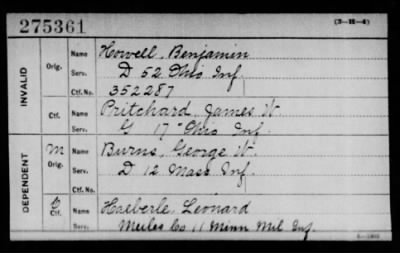 275361
(3-H-4)
INVALID
Orig.
Name Howell, Benjamin
Serv. D 52 Ohio Inf.
Ctf. No. 352287
Ctf.
Name Pritchard, James W.
Serv. G 17 Ohio Inf.
DEPENDENT
M
Orig.
Name Burns, George W.
Serv. D 12 Mass Inf.
Ctf. No.
Ctf.
Name Haeberle, Leonard
Serv. Co 11 Minn Mil Inf.